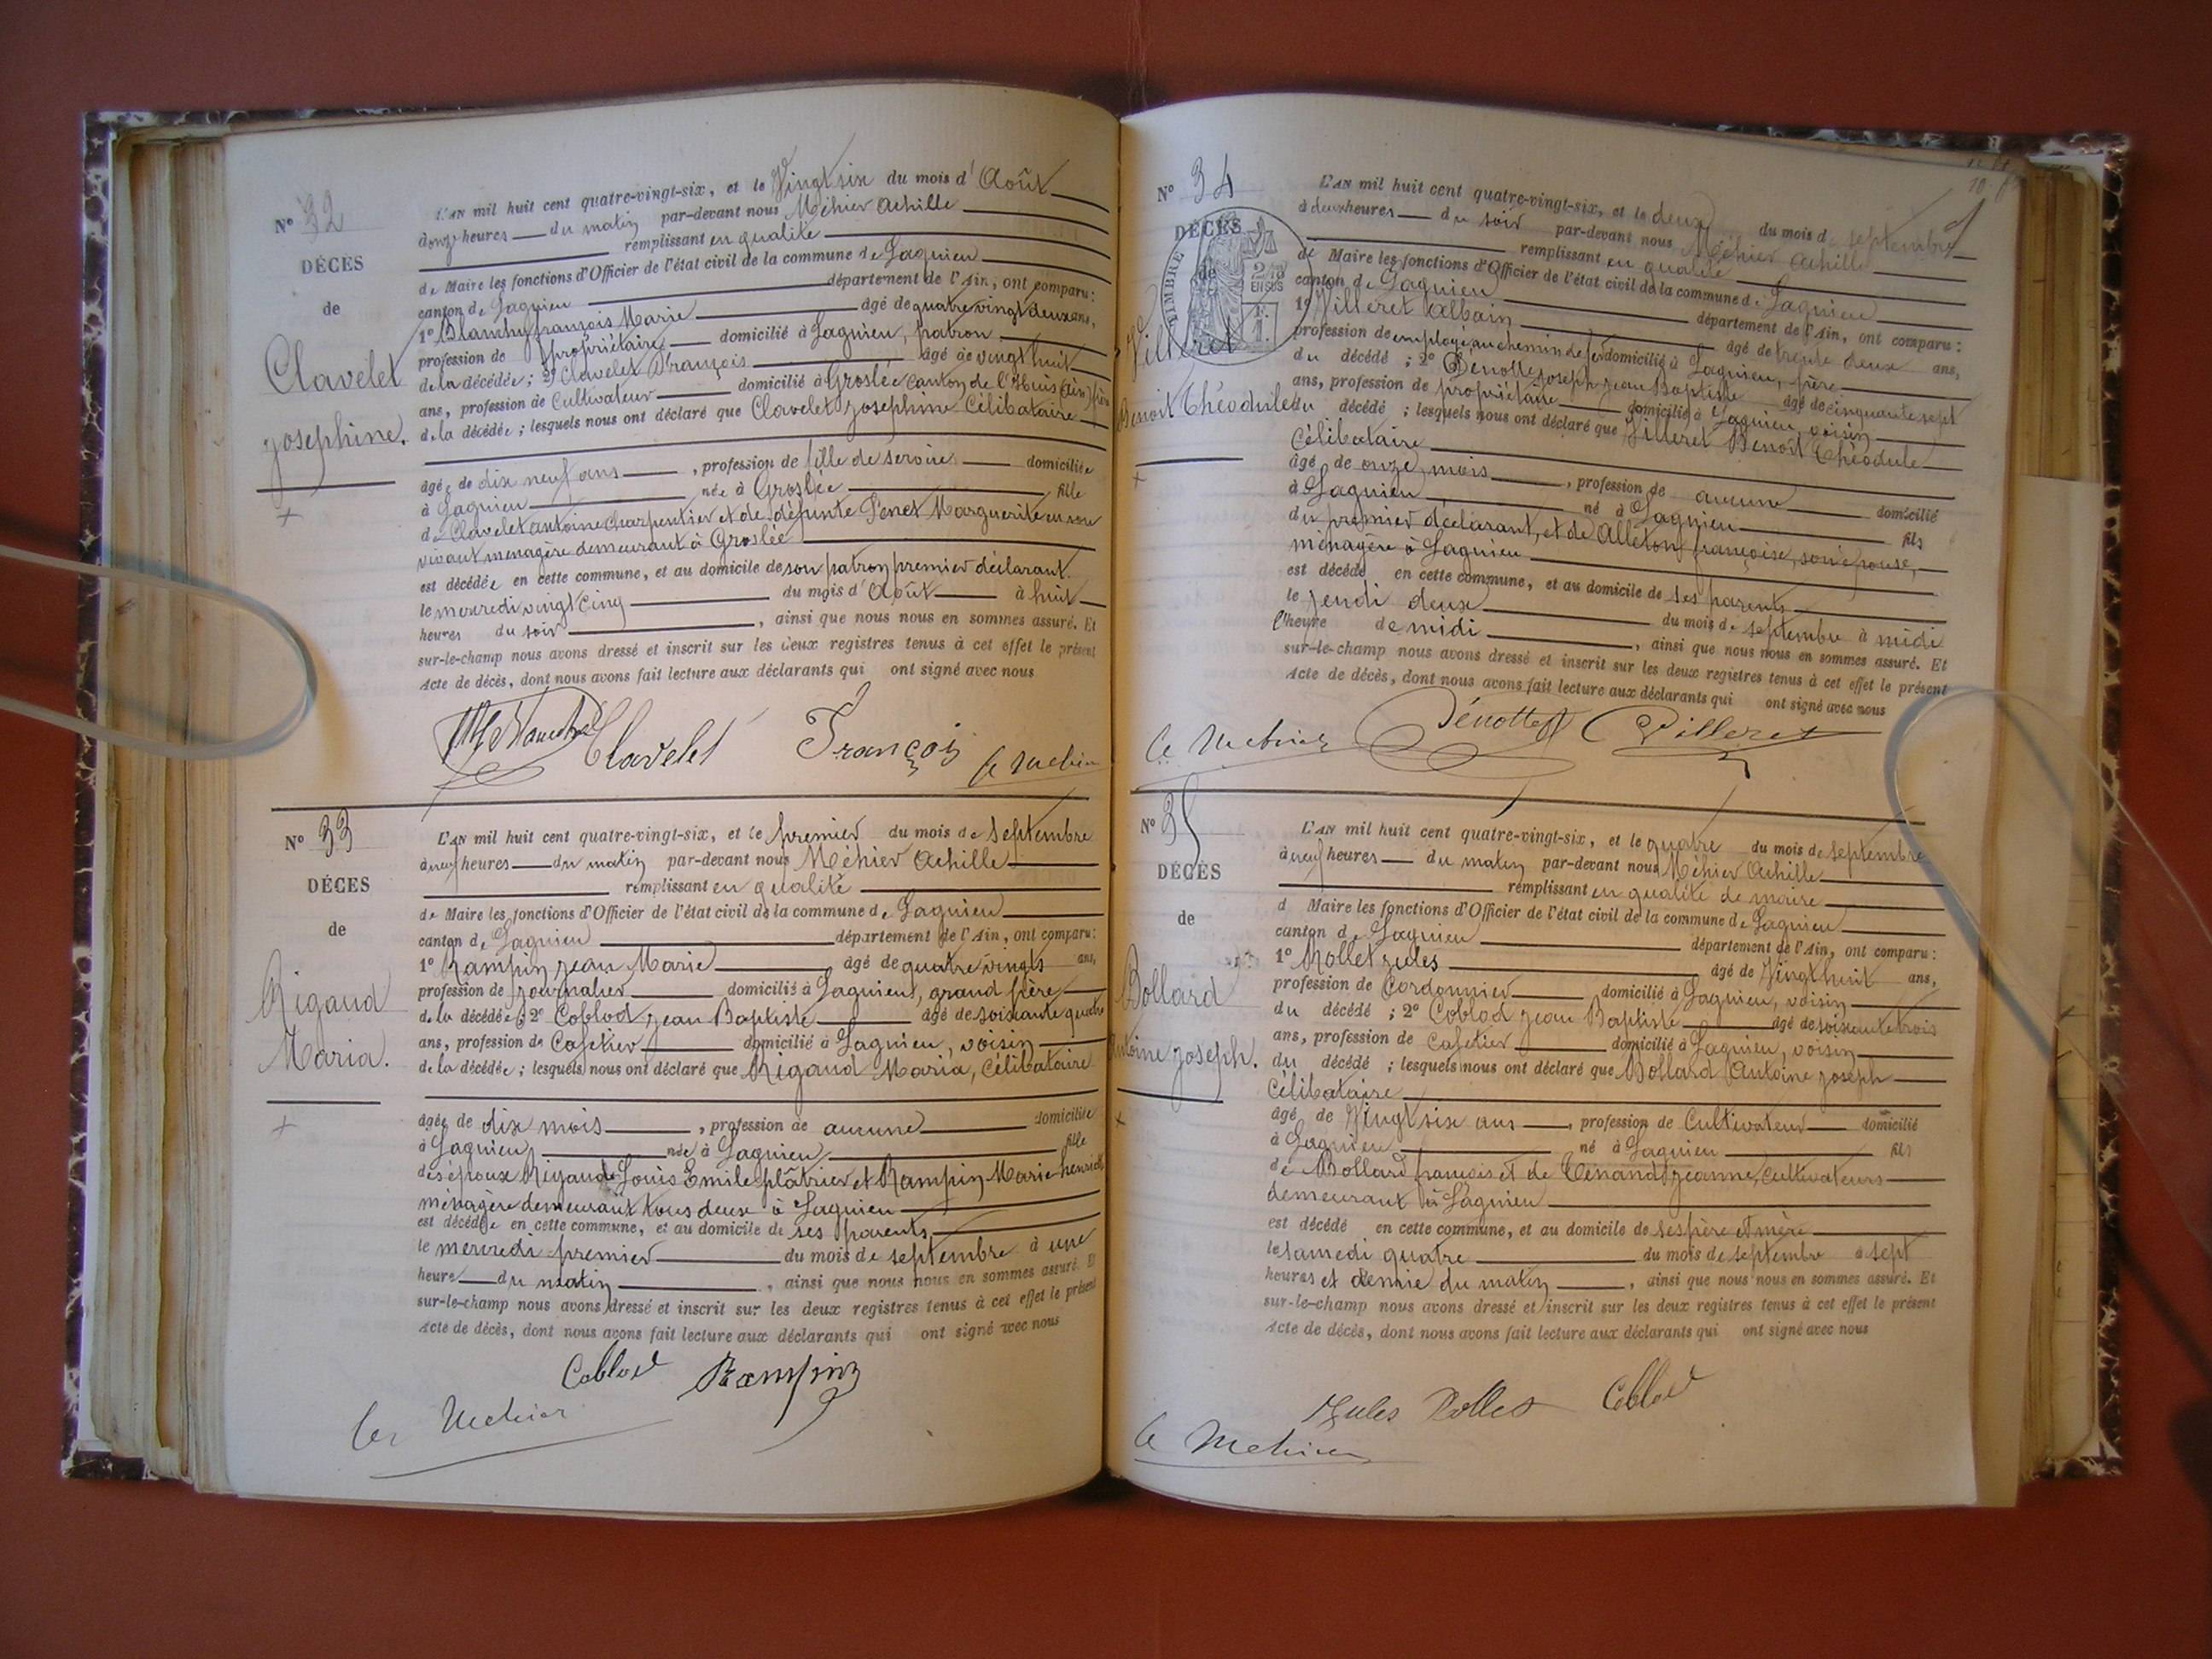 N° 32
DÉCÈS
de
Clavelet
Josephine.
L'AN mil huit cent quatre-vingt-six, et le Vingt six du mois d'Août
à onze heures du matin par-devant nous Méhier Achille
remplissant en qualité
de Maire les fonctions d'Officier de l'état civil de la commune de Lagnieu
canton de Lagnieu département de l'Ain, ont comparu :
1° Blanchy françois Marie âgé de quatre vingt deux ans,
profession de propriétaire domicilié à Lagnieu, patron
de la décédée ; 2° Clavelet François âgé de vingt huit
ans, profession de Cultivateur domicilié à Groslée canton de l'Huis (Ain) frère
de la décédée ; lesquels nous ont déclaré que Clavelet Josephine Célibataire
âgée de dix neuf ans, profession de fille de service domiciliée
à Lagnieu née à Groslée fille
de Clavelet antoine Charpentier et de défunte Penet Marguerite en son
vivant menagère demeurant à Groslée
est décédée en cette commune, et au domicile de son patron premier déclarant
le mercredi vingt cinq du mois d'Août à huit
heures du soir, ainsi que nous nous en sommes assuré. Et
sur-le-champ nous avons dressé et inscrit sur les deux registres tenus à cet effet le présent
Acte de décès, dont nous avons fait lecture aux déclarants qui ont signé avec nous
Clavelet François
N° 33
DÉCÈS
de
Rigaud
Maria.
L'AN mil huit cent quatre-vingt-six, et le premier du mois de septembre
à neuf heures du matin par-devant nous Méhier Achille
remplissant en qualité
de Maire les fonctions d'Officier de l'état civil de la commune de Lagnieu
canton de Lagnieu département de l'Ain, ont comparu :
1° Rampin Jean Marie âgé de quatre vingts ans,
profession de Journalier domicilié à Lagnieu, grand père
de la décédée ; 2° Coblod Jean Baptiste âgé de soixante quatre
ans, profession de Cafetier domicilié à Lagnieu, voisin
de la décédée ; lesquels nous ont déclaré que Rigaud Maria, Célibataire
âgée de dix mois, profession de aucune domiciliée
à Lagnieu née à Lagnieu fille
des époux Rigaud Louis Emile plâtrier et Rampin Marie
ménagère demeurant tous deux à Lagnieu
est décédée en cette commune, et au domicile de ses parents
le mercredi premier du mois de septembre à une
heure du matin, ainsi que nous nous en sommes assuré. Et
sur-le-champ nous avons dressé et inscrit sur les deux registres tenus à cet effet le présent
Acte de décès, dont nous avons fait lecture aux déclarants qui ont signé avec nous
Coblod Rampin
Mehier
N° 34
DÉCÈS
de
TIMBRE
2/10 EN SUS
F. 1.
Villeret
Benoit Théodule
L'AN mil huit cent quatre-vingt-six, et le deux du mois de septembre
à deux heures du soir par-devant nous Méhier Achille
remplissant en qualité
de Maire les fonctions d'Officier de l'état civil de la commune de Lagnieu
canton de Lagnieu département de l'Ain, ont comparu :
1° Villeret Albain âgé de trente deux ans,
profession de employé au chemin de fer domicilié à Lagnieu, père
du décédé ; 2° Dénotte Joseph Jean Baptiste âgé de cinquante sept
ans, profession de propriétaire domicilié à Lagnieu, voisin
du décédé ; lesquels nous ont déclaré que Villeret Benoit Théodule
Célibataire
âgé de onze mois, profession de aucune domicilié
à Lagnieu né à Lagnieu fils
du premier déclarant, et de Alleton françoise, son épouse,
ménagère à Lagnieu
est décédé en cette commune, et au domicile de ses parents
le jeudi deux du mois de septembre à midi
l'heure de midi, ainsi que nous nous en sommes assuré. Et
sur-le-champ nous avons dressé et inscrit sur les deux registres tenus à cet effet le présent
Acte de décès, dont nous avons fait lecture aux déclarants qui ont signé avec nous
Dénotte Villeret
N° 35
DÉCÈS
de
Bollard
Antoine Joseph.
L'AN mil huit cent quatre-vingt-six, et le quatre du mois de septembre
à neuf heures du matin par-devant nous Méhier Achille
remplissant en qualité de maire
d Maire les fonctions d'Officier de l'état civil de la commune de Lagnieu
canton de Lagnieu département de l'Ain, ont comparu :
1° Rollet Jules âgé de Vingt huit ans,
profession de Cordonnier domicilié à Lagnieu, voisin
du décédé ; 2° Coblod Jean Baptiste âgé de soixante trois
ans, profession de Cafetier domicilié à Lagnieu, voisin
du décédé ; lesquels nous ont déclaré que Bollard Antoine Joseph
Célibataire
âgé de Vingt six ans, profession de Cultivateur domicilié
à Lagnieu né à Lagnieu fils
de Bollard françois et de Tenand Jeanne, Cultivateurs
demeurant à Lagnieu
est décédé en cette commune, et au domicile de ses père et mère
le samedi quatre du mois de septembre à sept
heures et demie du matin, ainsi que nous nous en sommes assuré. Et
sur-le-champ nous avons dressé et inscrit sur les deux registres tenus à cet effet le présent
Acte de décès, dont nous avons fait lecture aux déclarants qui ont signé avec nous
Jules Rollet Coblod
Mehier